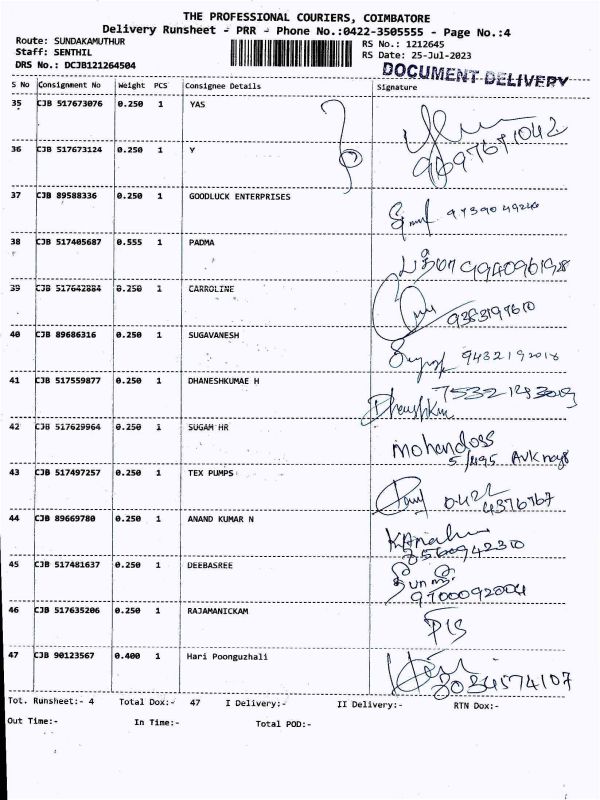 THE PROFESSIONAL COURIERS, COIMBATORE
Delivery Runsheet - PRR - Phone No.:0422-3505555 - Page No.:4
Route: SUNDAKAMUTHUR RS No.: 1212645
Staff: SENTHIL RS Date: 25-Jul-2023
DRS No.: DCJB121264504 DOCUMENT DELIVERY
S No Consignment No Weight PCS Consignee Details Signature
35 CJB 517673076 0.250 1 YAS
36 CJB 517673124 0.250 1 Y
37 CJB 89588336 0.250 1 GOODLUCK ENTERPRISES
38 CJB 517405687 0.555 1 PADMA 9940961928
39 CJB 517642884 0.250 1 CARROLINE 9363197610
40 CJB 89686316 0.250 1 SUGAVANESH 9432192018
41 CJB 517559877 0.250 1 DHANESHKUMAE H
42 CJB 517629964 0.250 1 SUGAM HR mohandoss
43 CJB 517497257 0.250 1 TEX PUMPS 0422
4376767
44 CJB 89669780 0.250 1 ANAND KUMAR N
45 CJB 517481637 0.250 1 DEEBASREE
9700092004
46 CJB 517635206 0.250 1 RAJAMANICKAM
47 CJB 90123567 0.400 1 Hari Poonguzhali
8034574107
Tot. Runsheet:- 4 Total Dox:- 47 I Delivery:- II Delivery:- RTN Dox:-
Out Time:- In Time:- Total POD:-